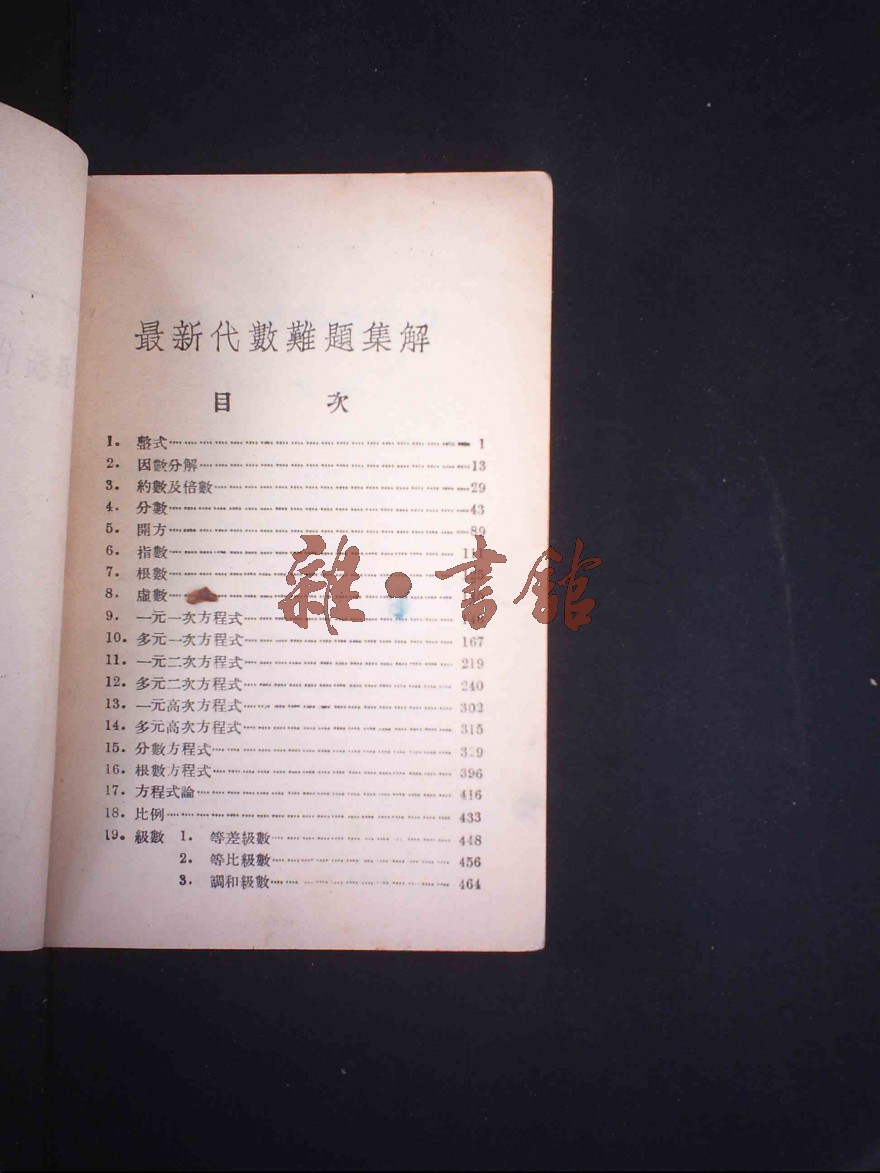 最新代數難題集解
目 次
1. 整式 1
2. 因數分解 13
3. 約數及倍數 29
4. 分數 43
5. 開方 89
6. 指數
7. 根數
8. 虛數
9. 一元一次方程式
10. 多元一次方程式 167
11. 一元二次方程式 219
12. 多元二次方程式 240
13. 一元高次方程式 302
14. 多元高次方程式 315
15. 分數方程式
16. 根數方程式 396
17. 方程式論 416
18. 比例 433
19. 級數 1. 等差級數 448
2. 等比級數 456
3. 調和級數 464
雜·書館